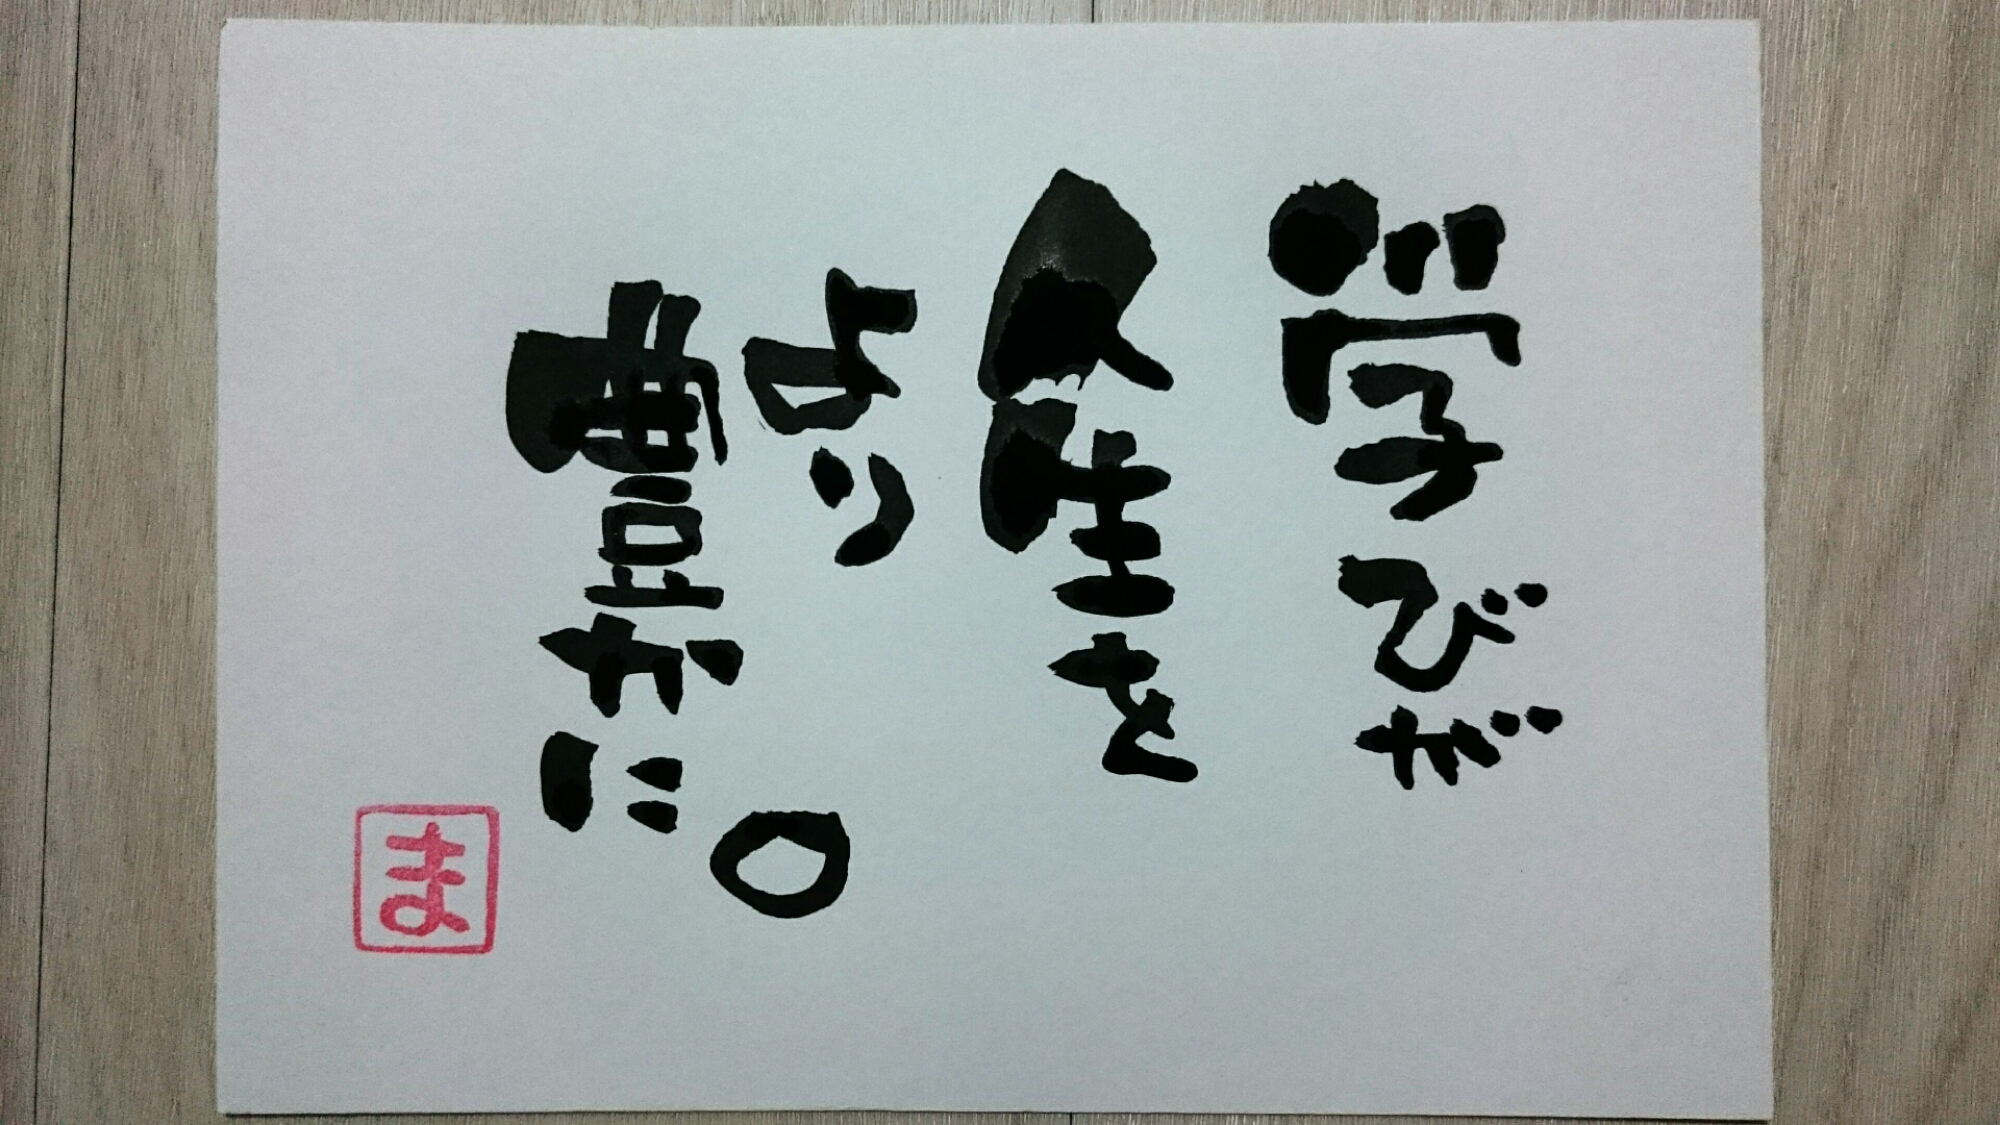 学びが
人生を
より
豊かに。
ま